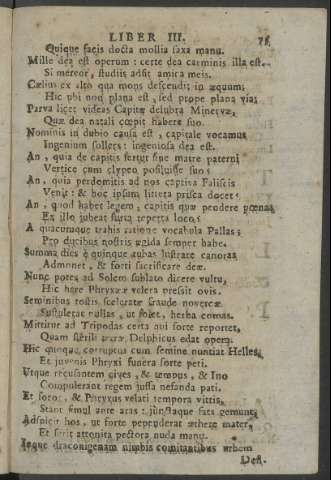 LIBER III. 75
Quique facis docta mollia saxa manu.
Mille dea est operum: certe dea carminis illa est.
Si mereor, studiis adsit amica meis.
Cælius ex alto qua mons descendit in æquum;
Hic ubi non plana est, sed prope plana via;
Parva licet videas Captæ delubra Minervæ,
Quæ dea natali cœpit habere suo.
Nominis in dubio causa est, capitale vocamus
Ingenium sollers: ingeniosa dea est.
An, quia de capitis fertur sine matre paterni
Vertice cum clypeo prosiluisse suo:
An, quia perdomitis ad nos captiva Faliscis
Venit: & hoc ipsum littera prisca docet:
An, quod habet legem, capitis quæ pendere pœnas
Ex illo jubeat furta reperta loco;
A quacumque trahis ratione vocabula Pallas;
Pro ducibus nostris ægida semper habe.
Summa dies e quinque tubas lustrare canoras
Admonet, & forti sacrificare deæ.
Nunc potes ad Solem sublato dicere vultu,
Hic here Phryxeæ vellera pressit ovis.
Seminibus tostis sceleratæ fraude novercæ
Sustulerat nullas, ut solet, herba comas.
Mittitur ad Tripodas certa qui sorte reportet,
Quam sterili terræ Delphicus edat opem.
Hic quoque corruptus cum semine nuntiat Helles,
Et juvenis Phryxi funera sorte peti.
Utque recusantem cives, & tempus, & Ino
Compulerant regem jussa nefanda pati.
Et soror, & Phryxus velati tempora vittis,
Stant simul ante aras: junctaque fata gemunt.
Adspicit hos, ut forte pependerat æthere mater,
Et ferit attonita pectora nuda manu.
Inque draconigenam nimbis comitantibus urbem
Des.